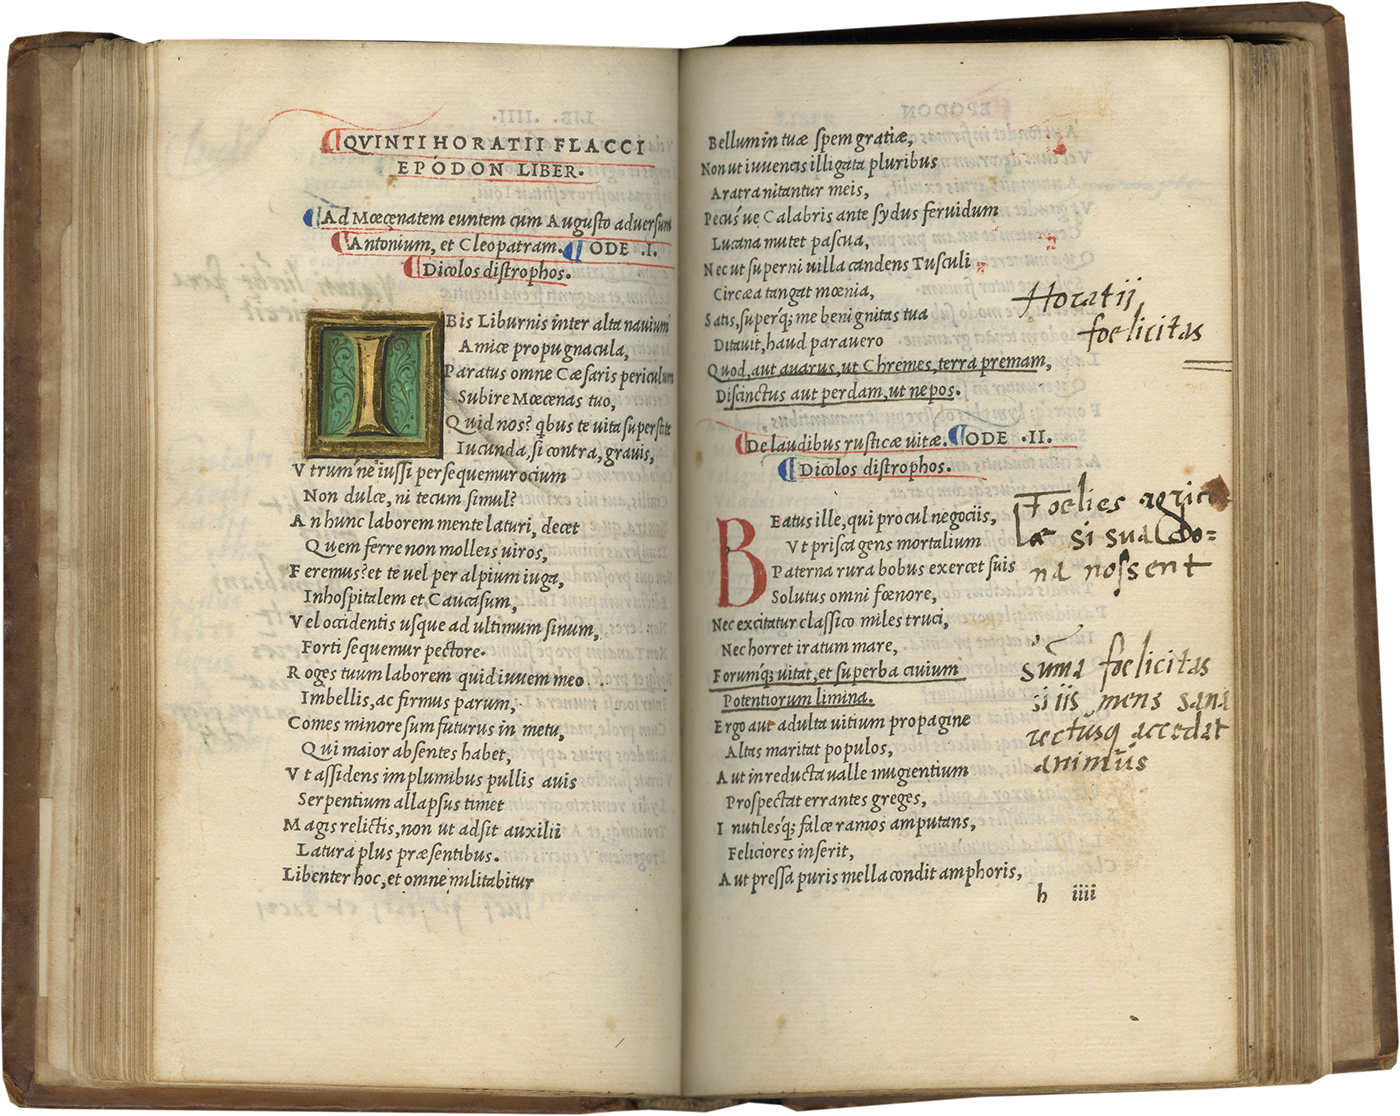 QVINTI HORATII FLACCI
EPODON LIBER.
Ad Mœcenatem euntem cum Augusto adversum
Antonium, et Cleopatram. ODE .I.
Dicolos distrophos.
IBis Liburnis inter alta navium
Amice propugnacula,
Paratus omne Cæsaris periculum
Subire Mœcenas tuo,
Quid nos? qbus te vita superstite
Iucunda, si contra, gravis,
Vtrum'ne iussi persequemur ocium
Non dulce, ni tecum simul?
An hunc laborem mente laturi, decet
Quem ferre non molleis viros,
Feremus? et te vel per alpium iuga,
Inhospitalem et Caucasum,
Vel occidentis usque ad ultimum sinum,
Forti sequemur pectore.
Roges tuum laborem quid iuvem meo
Imbellis, ac firmus parum,
Comes minore sum futurus in metu,
Qui maior absentes habet,
Vt assidens implumibus pullis avis
Serpentium allapsus timet
Magis relictis, non ut adsit auxilii
Latura plus præsentibus.
Libenter hoc, et omne militabitur
Bellum in tuæ spem gratiæ,
Non ut iuvencis illigata pluribus
Aratra nitantur meis,
Pecus've Calabris ante sydus fervidum
Lucana mutet pascua,
Nec ut superni villa candens Tusculi
Circæa tangat mœnia,
Satis, superq; me benignitas tua
Ditavit, haud paravero
Quod, aut avarus, ut Chremes, terra premam,
Discinctus aut perdam, ut nepos.
Horatii
foelicitas
De laudibus rusticæ vitæ. ODE .II.
Dicolos distrophos.
BEatus ille, qui procul negociis,
Vt prisca gens mortalium
Paterna rura bobus exercet suis
Solutus omni fœnore,
Nec excitatur classico miles truci,
Nec horret iratum mare,
Forumq; vitat, et superba civium
Potentiorum limina.
Ergo aut adulta vitium propagine
Altas maritat populos,
Aut in reducta valle mugientium
Prospectat errantes greges,
Inutilesq; falce ramos amputans,
Feliciores inserit,
Aut pressa puris mella condit amphoris,
h iiii
Foelices
æ si sua bo=
na nossent
suma foelicitas
si iis mens sana
rectusq accedat
animus